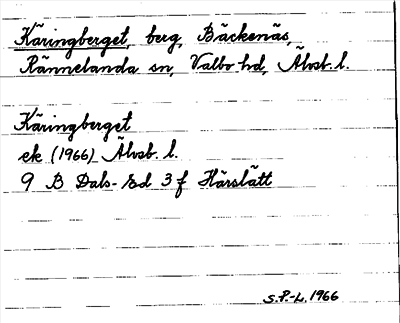 Käringberget, berg, Bäckenäs,
Rännelanda sn, Valbo hd, Älvsb. l.
Käringberget
ek (1966) Älvsb. l.
9 B Dals-Ed 3 f Härslätt
S.P.-L. 1966